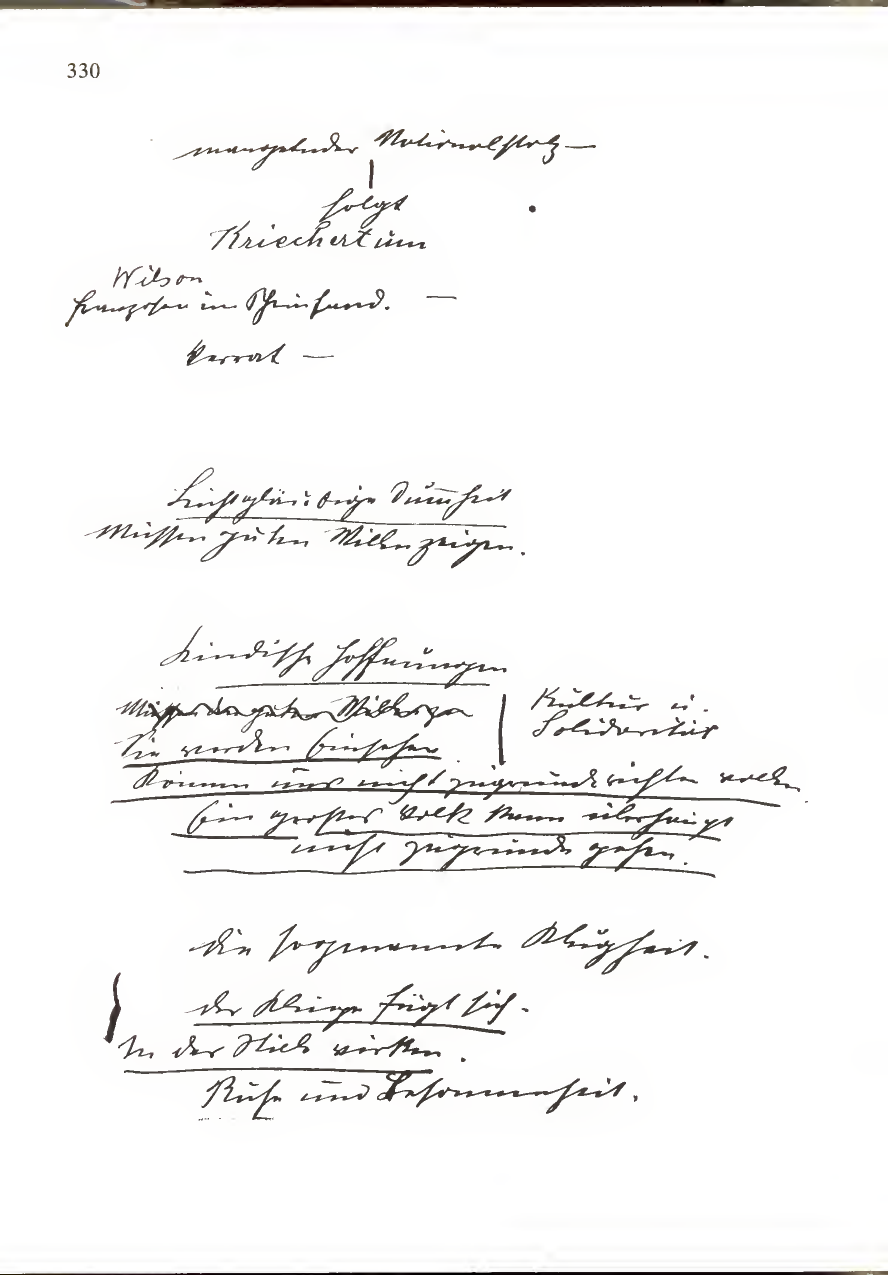 330
mangelnder Nationalstolz —
folgt
Kriechertum
Wilson
Franzosen im Rheinland. —
Verrat —
Leichtgläubige Dummheit
Müssen guten Willen zeigen.
Kindische Hoffnungen
Müssen den guten Willen
Kultur u.
Solidarität
Sie werden Einsehen
Können uns nicht zugrunde richten wollen
Ein großes Volk kann überhaupt
nicht zugrunde gehen.
die sogenannte Klugheit.
der Kluge fügt sich.
In der Stille wirken.
Ruhe und Besonnenheit.